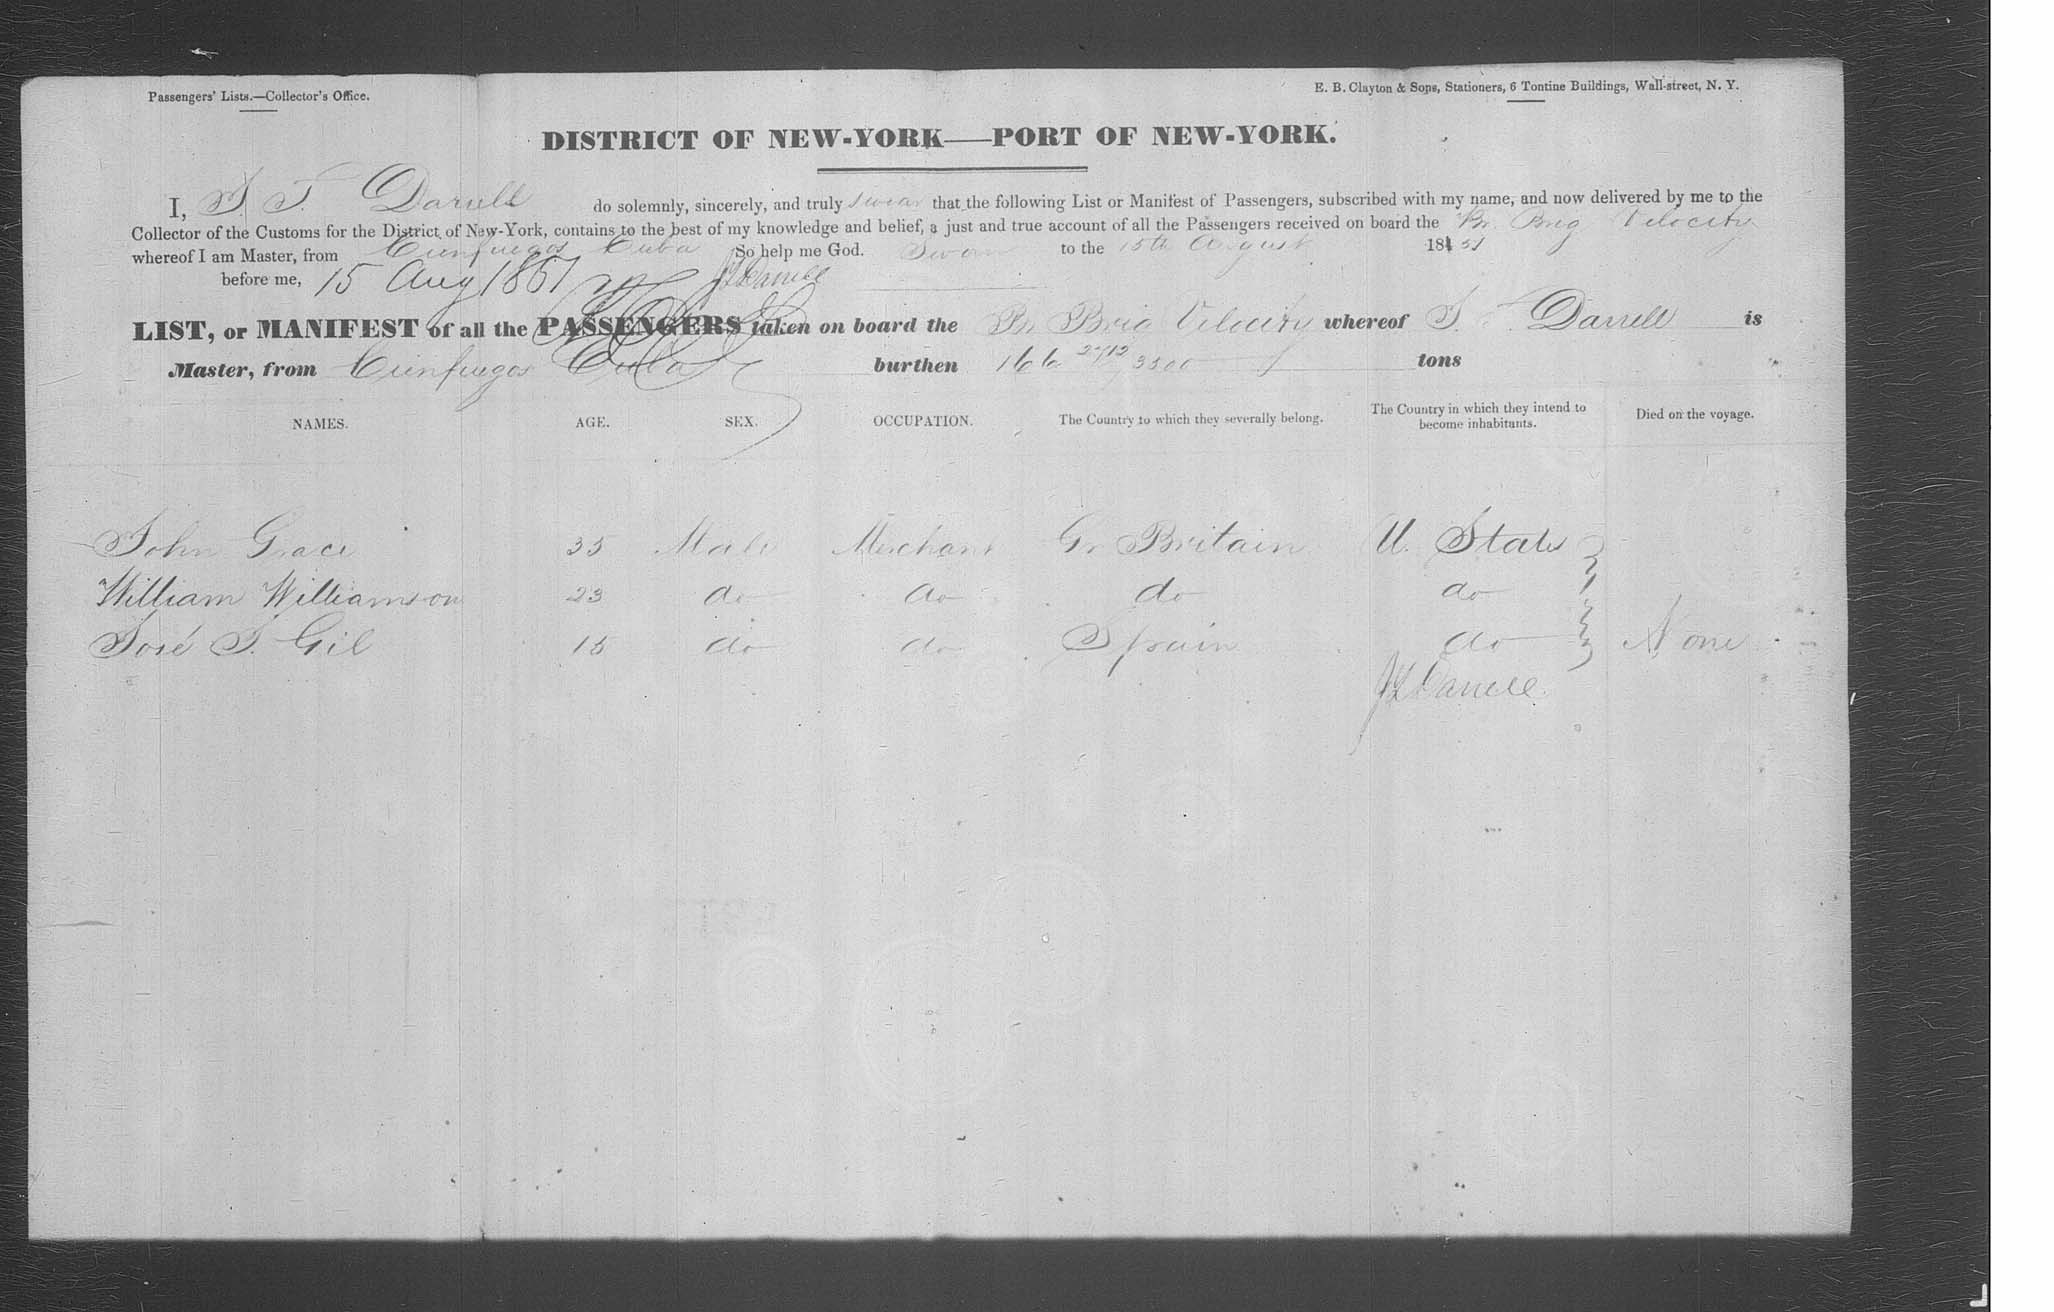 Passengers' Lists.—Collector's Office.
E. B. Clayton & Sons, Stationers, 6 Tontine Buildings, Wall-street, N. Y.
DISTRICT OF NEW-YORK——PORT OF NEW-YORK.
I, J. T. Darrell do solemnly, sincerely, and truly swear that the following List or Manifest of Passengers, subscribed with my name, and now delivered by me to the
Collector of the Customs for the District of New-York, contains to the best of my knowledge and belief, a just and true account of all the Passengers received on board the Br. Brig Velocity
whereof I am Master, from Cienfuegos Cuba So help me God. Sworn to the 15th August 1851
before me, 15 Aug 1851 Darrell
LIST, or MANIFEST of all the PASSENGERS taken on board the Br Brig Velocity whereof J. T. Darrell is
Master, from Cienfuegos Cuba burthen 166 tons
NAMES. AGE. SEX. OCCUPATION. The Country to which they severally belong. The Country in which they intend to become inhabitants. Died on the voyage.
John Grace 35 Male Merchant Gr Britain U. States
William Williamson 23 do do do do
José J. Gil 15 do do Spain do None
Darrell